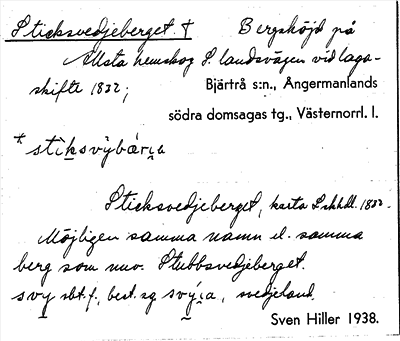 Sticksvedjeberget. † Bergshöjd på
Allsta hemskog S. landsvägen vid laga-
skifte 1832;
Bjärtrå s:n., Ångermanlands
södra domsagas tg., Västernorrl. l.
* stiksvỳbæ̀ri̯a
Sticksvedjeberget, karta L skhdl. 1832.
Möjligen samma namn el. samma
berg som nuv. Stubbsvedjeberget.
svy sbt. f., best. sg svýi̯a, svedjeland.
Sven Hiller 1938.